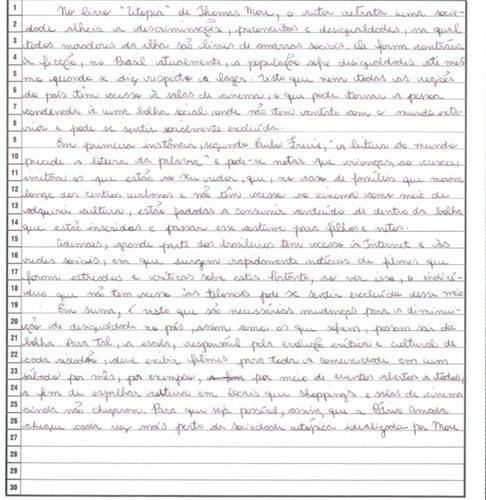 1 No livro "Utopia" de Thomas More, o autor retrata uma socie-
2 dade alheia a descriminações, preconceitos e desigualdades, na qual
3 todos moradores da ilha são livres de amarras sociais. De forma contrária
4 à ficção, no Brasil atualmente, a população sofre desigualdades até mes-
5 mo quando se diz respeito ao lazer. Visto que nem todas as regiões
6 do país têm acesso à salas de cinema, o que pode tornar a pessoa
7 condenada à uma bolha social, onde não tem contato com o mundo exte-
8 rior e pode se sentir socialmente excluída.
9 Em primeira instância, segundo Paulo Freire, "a leitura do mundo
10 precede a leitura da palavra" e pode-se notar que crianças, ao crescer,
11 imitam os que estão ao seu redor, que, no caso de famílias que moram
12 longe dos centros urbanos e não têm acesso ao cinema como meio de
13 adquirir cultura, estão fadadas a consumir conteúdo de dentro da bolha
14 que estão inseridos e passar esse costume para filhos e netos.
15 Ademais, grande parte dos brasileiros tem acesso à Internet e às
16 redes sociais, em que surgem rapidamente notícias de filmes que
17 foram estreados e críticas sobre estes. Portanto, ao ver isso, o indiví-
18 duo que não tem acesso às telonas pode se sentir excluído desse meio.
19 Em suma, é visto que são necessárias mudanças para a diminui-
20 ção de desigualdade no país, assim como os que sofrem, possam sair da
21 bolha. Para tal, a escola, responsável pela evolução crítica e cultural de
22 cada cidadão, deve exibir filmes para toda a comunidade em um
23 sábado por mês, por exemplo, por meio de eventos abertos a todos,
24 a fim de espalhar cultura em locais que shoppings e salas de cinema
25 ainda não chegaram. Para que seja possível, assim, que a Pátria Amada
26 chegue cada vez mais perto da sociedade utópica idealizada por More.
27
28
29
30